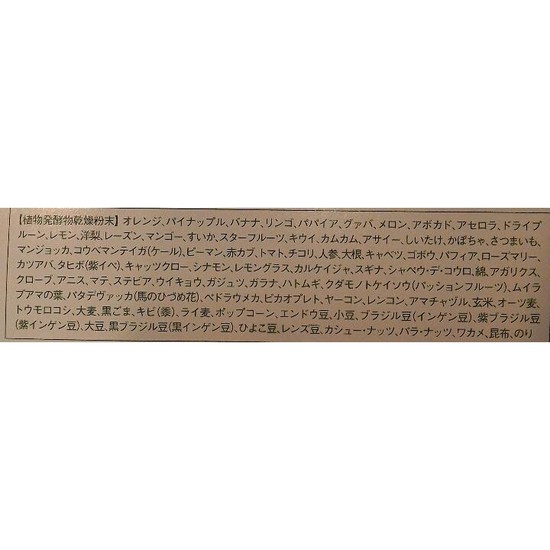 【植物発酵物乾燥粉末】オレンジ、パイナップル、バナナ、リンゴ、パパイア、グァバ、メロン、アボカド、アセロラ、ドライプ
ルーン、レモン、洋梨、レーズン、マンゴー、すいか、スターフルーツ、キウイ、カムカム、アサイー、しいたけ、かぼちゃ、さつまいも、
マンジョッカ、コウベマンテイガ(ケール)、ピーマン、赤カブ、トマト、チコリ、人参、大根、キャベツ、ゴボウ、パフィア、ローズマリー、
カツアバ、タヒボ(紫イペ)、キャッツクロー、シナモン、レモングラス、カルケイジャ、スギナ、シャペウ・デ・コウロ、綿、アガリクス、
クローブ、アニス、マテ、ステビア、ウイキョウ、ガジュツ、ガラナ、ハトムギ、クダモノトケイソウ(パッションフルーツ)、ムイラ
プアマの葉、パタデヴァッカ(馬のひづめ花)、ペドラウメカ、ピカオプレト、ヤーコン、レンコン、アマチャヅル、玄米、オーツ麦、
トウモロコシ、大麦、黒ごま、キビ(黍)、ライ麦、ポップコーン、エンドウ豆、小豆、ブラジル豆(インゲン豆)、紫ブラジル豆
(紫インゲン豆)、大豆、黒ブラジル豆(黒インゲン豆)、ひよこ豆、レンズ豆、カシュー・ナッツ、パラ・ナッツ、ワカメ、昆布、のり